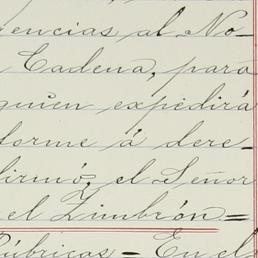 rencias al No-
Cadena, para
quien expedirá
forme á dere-
firmó, el Señor
el Zimbrón=
Rúbricas = En el